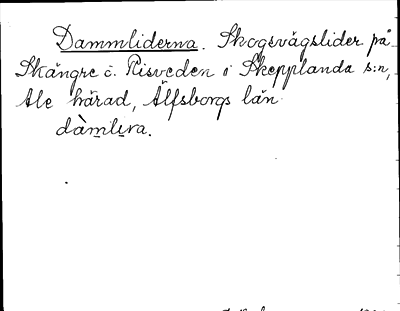 Dammliderna. Skogsvägslider på
Skängre å. Risveden i Skepplanda s:n,
Ale härad, Älfsborgs län.
dàmlɩra.